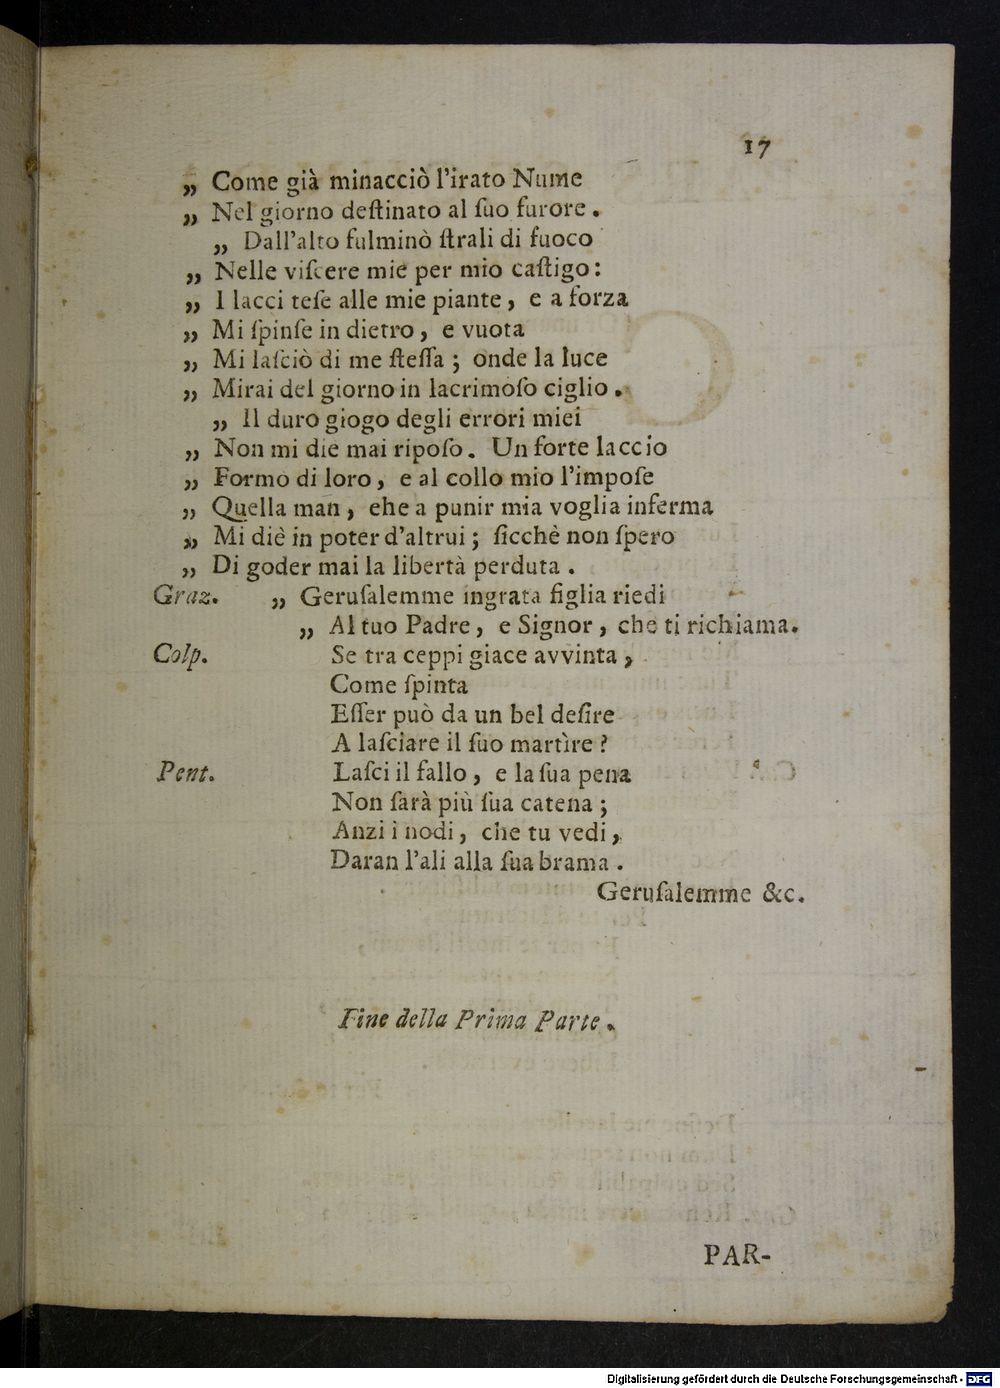 17
„ Come già minacciò l'irato Nume
„ Nel giorno deſtinato al ſuo furore .
„ Dall'alto fulminò ſtrali di fuoco
„ Nelle viſcere mie per mio caſtigo :
„ I lacci teſe alle mie piante , e a forza
„ Mi ſpinſe in dietro , e vuota
„ Mi laſciò di me ſteſſa ; onde la luce
„ Mirai del giorno in lacrimoſo ciglio .
„ Il duro giogo degli errori miei
„ Non mi die mai ripoſo . Un forte laccio
„ Formo di loro , e al collo mio l'impoſe
„ Quella man , ehe a punir mia voglia inferma
„ Mi diè in poter d'altrui ; ſicchè non ſpero
„ Di goder mai la libertà perduta .
Graz. „ Geruſalemme ingrata figlia riedi
„ Al tuo Padre , e Signor , che ti richiama .
Colp. Se tra ceppi giace avvinta ,
Come ſpinta
Eſſer può da un bel deſire
A laſciare il ſuo martìre ?
Pent. Laſci il fallo , e la ſua pena
Non ſarà più ſua catena ;
Anzi i nodi , che tu vedi ,
Daran l'ali alla ſua brama .
Geruſalemme &c.
Fine della Prima Parte .
PAR-
Digitalisierung gefördert durch die Deutsche Forschungsgemeinschaft - DFG